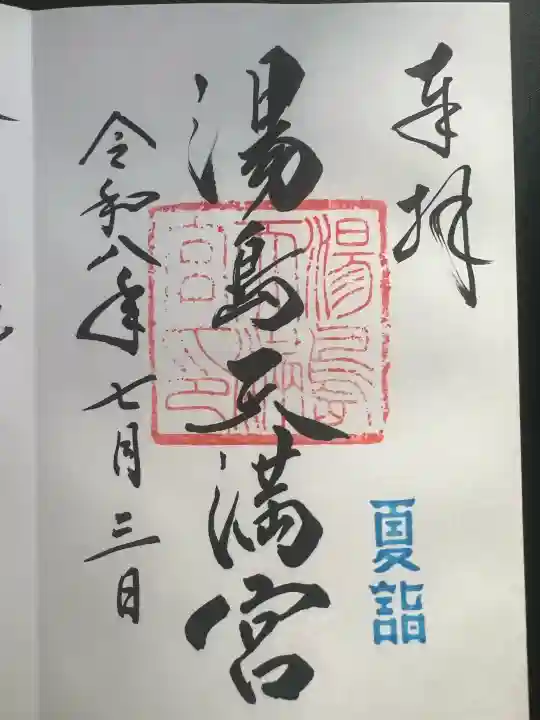 奉拝
夏詣
湯島天満宮
湯島天満宮印
令和八年七月三日